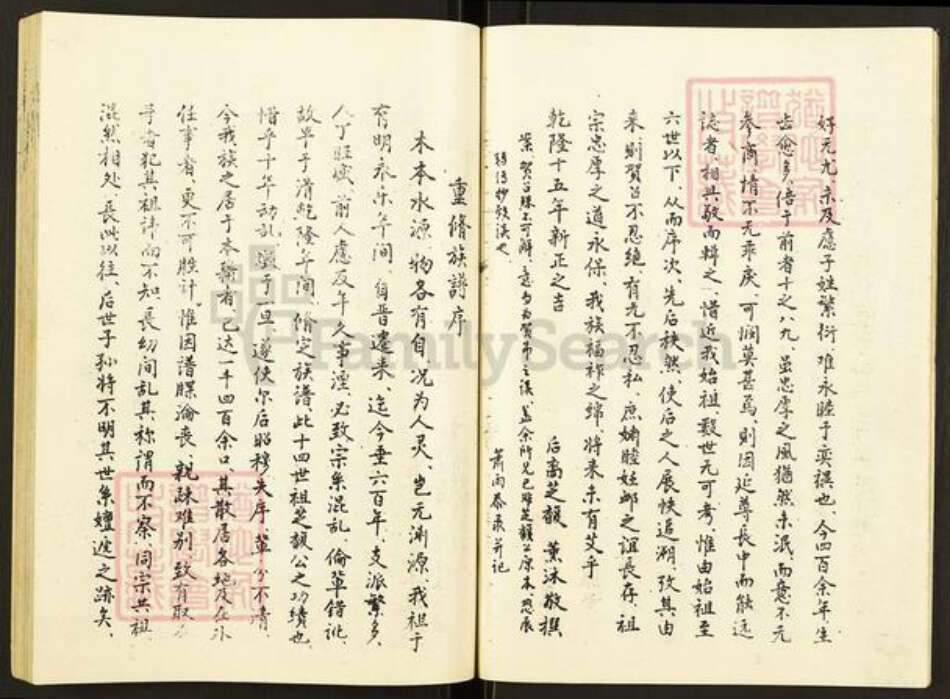 好无尤,亲及应子姓繁衍,难永睦于奕禩也、今四百余年、生
齿愈多、倍于前者十之八九、虽忠厚之风犹然未泯、而意不无
参商、情不无乖戾、可悯莫甚焉、则因延尊长中而能远
谈者相共敬而辑之、惜近我始祖、数世无可考、惟由始祖至
六世以下、从而序次、先后秩然、使后之人展帙追溯、孜其由
来、则贺吕不忍绝、有无不忍私、庶婣睦姙䘏之谊长存、祖
宗忠厚之道永保、我族福祚之绵、将来未有艾乎
乾隆十五年新正之吉
后裔芝馥 薰沐敬撰
案贺吕殊不可解、意为为贺吊之误、盖余所见已非芝馥公原本、恐展
转传抄致误也、
萧雨恭录并记
重脩族谱序
木本水源、物各有自、况为人灵、岂无渊源、我祖于
有明永乐年间、自晋迁来、迄今垂六百年、支派繁多、
人丁旺盛、前人虑及年久事湮、必致宗系混乱、伦辈错讹、
故早于清乾隆年间、修定族谱、此十四世祖芝馥公之功绩也、
惜乎十年动乱、毁于一旦、遂使尔后昭穆失序、辈分不清、
今我族之居于本乡者、已达一千四百余口、其散居各地及在外
任事者、更不可胜计、惟因谱牒沦丧、亲疏难别、致有取
字者犯其祖讳而不知、长幼间乱其称谓而不察、同宗共祖
混然相处、长此以往、后世子孙将不明其世系嬗递之迹矣、
FamilySearch